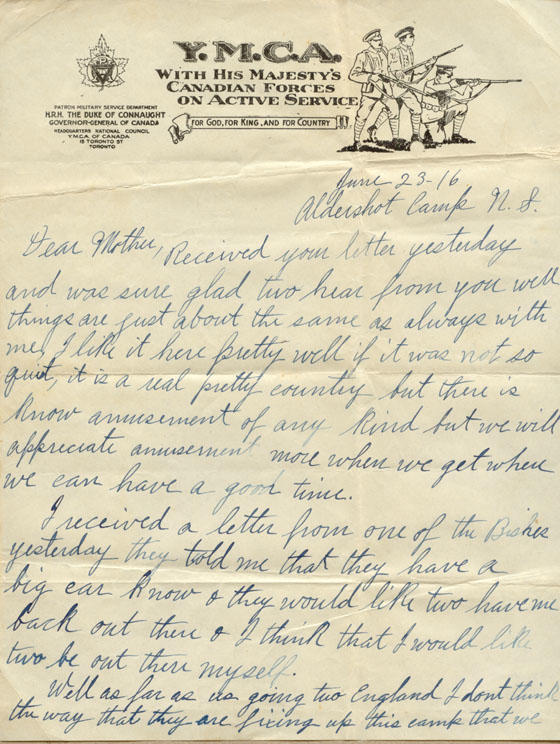 Y.M.C.A.
WITH HIS MAJESTY'S
CANADIAN FORCES
ON ACTIVE SERVICE
FOR GOD, FOR KING, AND FOR COUNTRY
PATRON MILITARY SERVICE DEPARTMENT
H.R.H. THE DUKE OF CONNAUGHT
GOVERNOR-GENERAL OF CANADA
HEADQUARTERS NATIONAL COUNCIL
Y.M.C.A. OF CANADA
15 TORONTO ST
TORONTO
June 23-16
Aldershot Camp N.S.
Dear Mother, Received your letter yesterday
and was sure glad two hear from you well
things are just about the same as always with
me, I like it here pretty well if it was not so
quiet, it is a real pretty country but there is
know amusement of any kind but we will
appreciate amusement more when we get where
we can have a good time.
I received a letter from one of the
yesterday they told me that they have a
big car know & they would like two have me
back out there & I think that I would like
two be out there myself.
Well as far as us going two England I dont think
the way that they are fixing up this camp that we